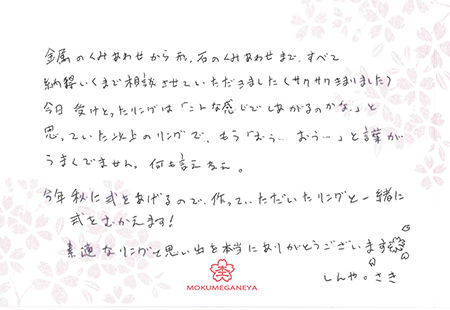 金属のくみあわせから形、石のくみあわせまで、すべて
納得いくまで相談させていただきました（サクサクきまりました）
今日受けとったリングは「こんな感じでしあがるのかな。」と
思っていた以上のリングで、もう「おぅ…おぅ…」と言葉が
うまくでません。何も言えねぇ。
今年秋に式をあげるので、作っていただいたリングと一緒に
式をむかえます！
素適なリングと思い出を本当にありがとうございます
しんや。さき
MOKUMEGANEYA